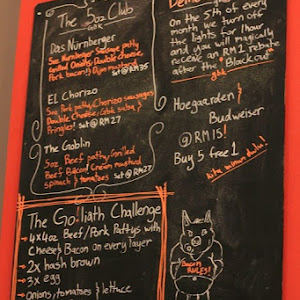 The 5oz Club
Das Nurnberger
5oz Nurnberger Sausage patty
Grilled Onions, Double cheese,
Pork bacon!) Dijon mustard
Set @ RM35
El Chorizo
5oz Pork patty, Chorizo sausages
Double Cheese,
Pringles! Set @ RM27
The Goblin
5oz Beef patty, Grilled
Beef Bacon, Cream mustard
spinach & tomatoes Set @ RM27
The Go!liath Challenge
→ 4x4oz Beef/Pork Pattys with
Cheese & Bacon on every layer
→ 2x hash brown
→ 3x egg
onions/tomatoes & lettuce
On the 5th of every
month we turn off
the lights for 1hour
and you will magically
receive an RM2 rebate
after the Blackout
Hoegaarden &
Budweiser
@ RM15!
Buy 5 free 1
Bacon
RULES!